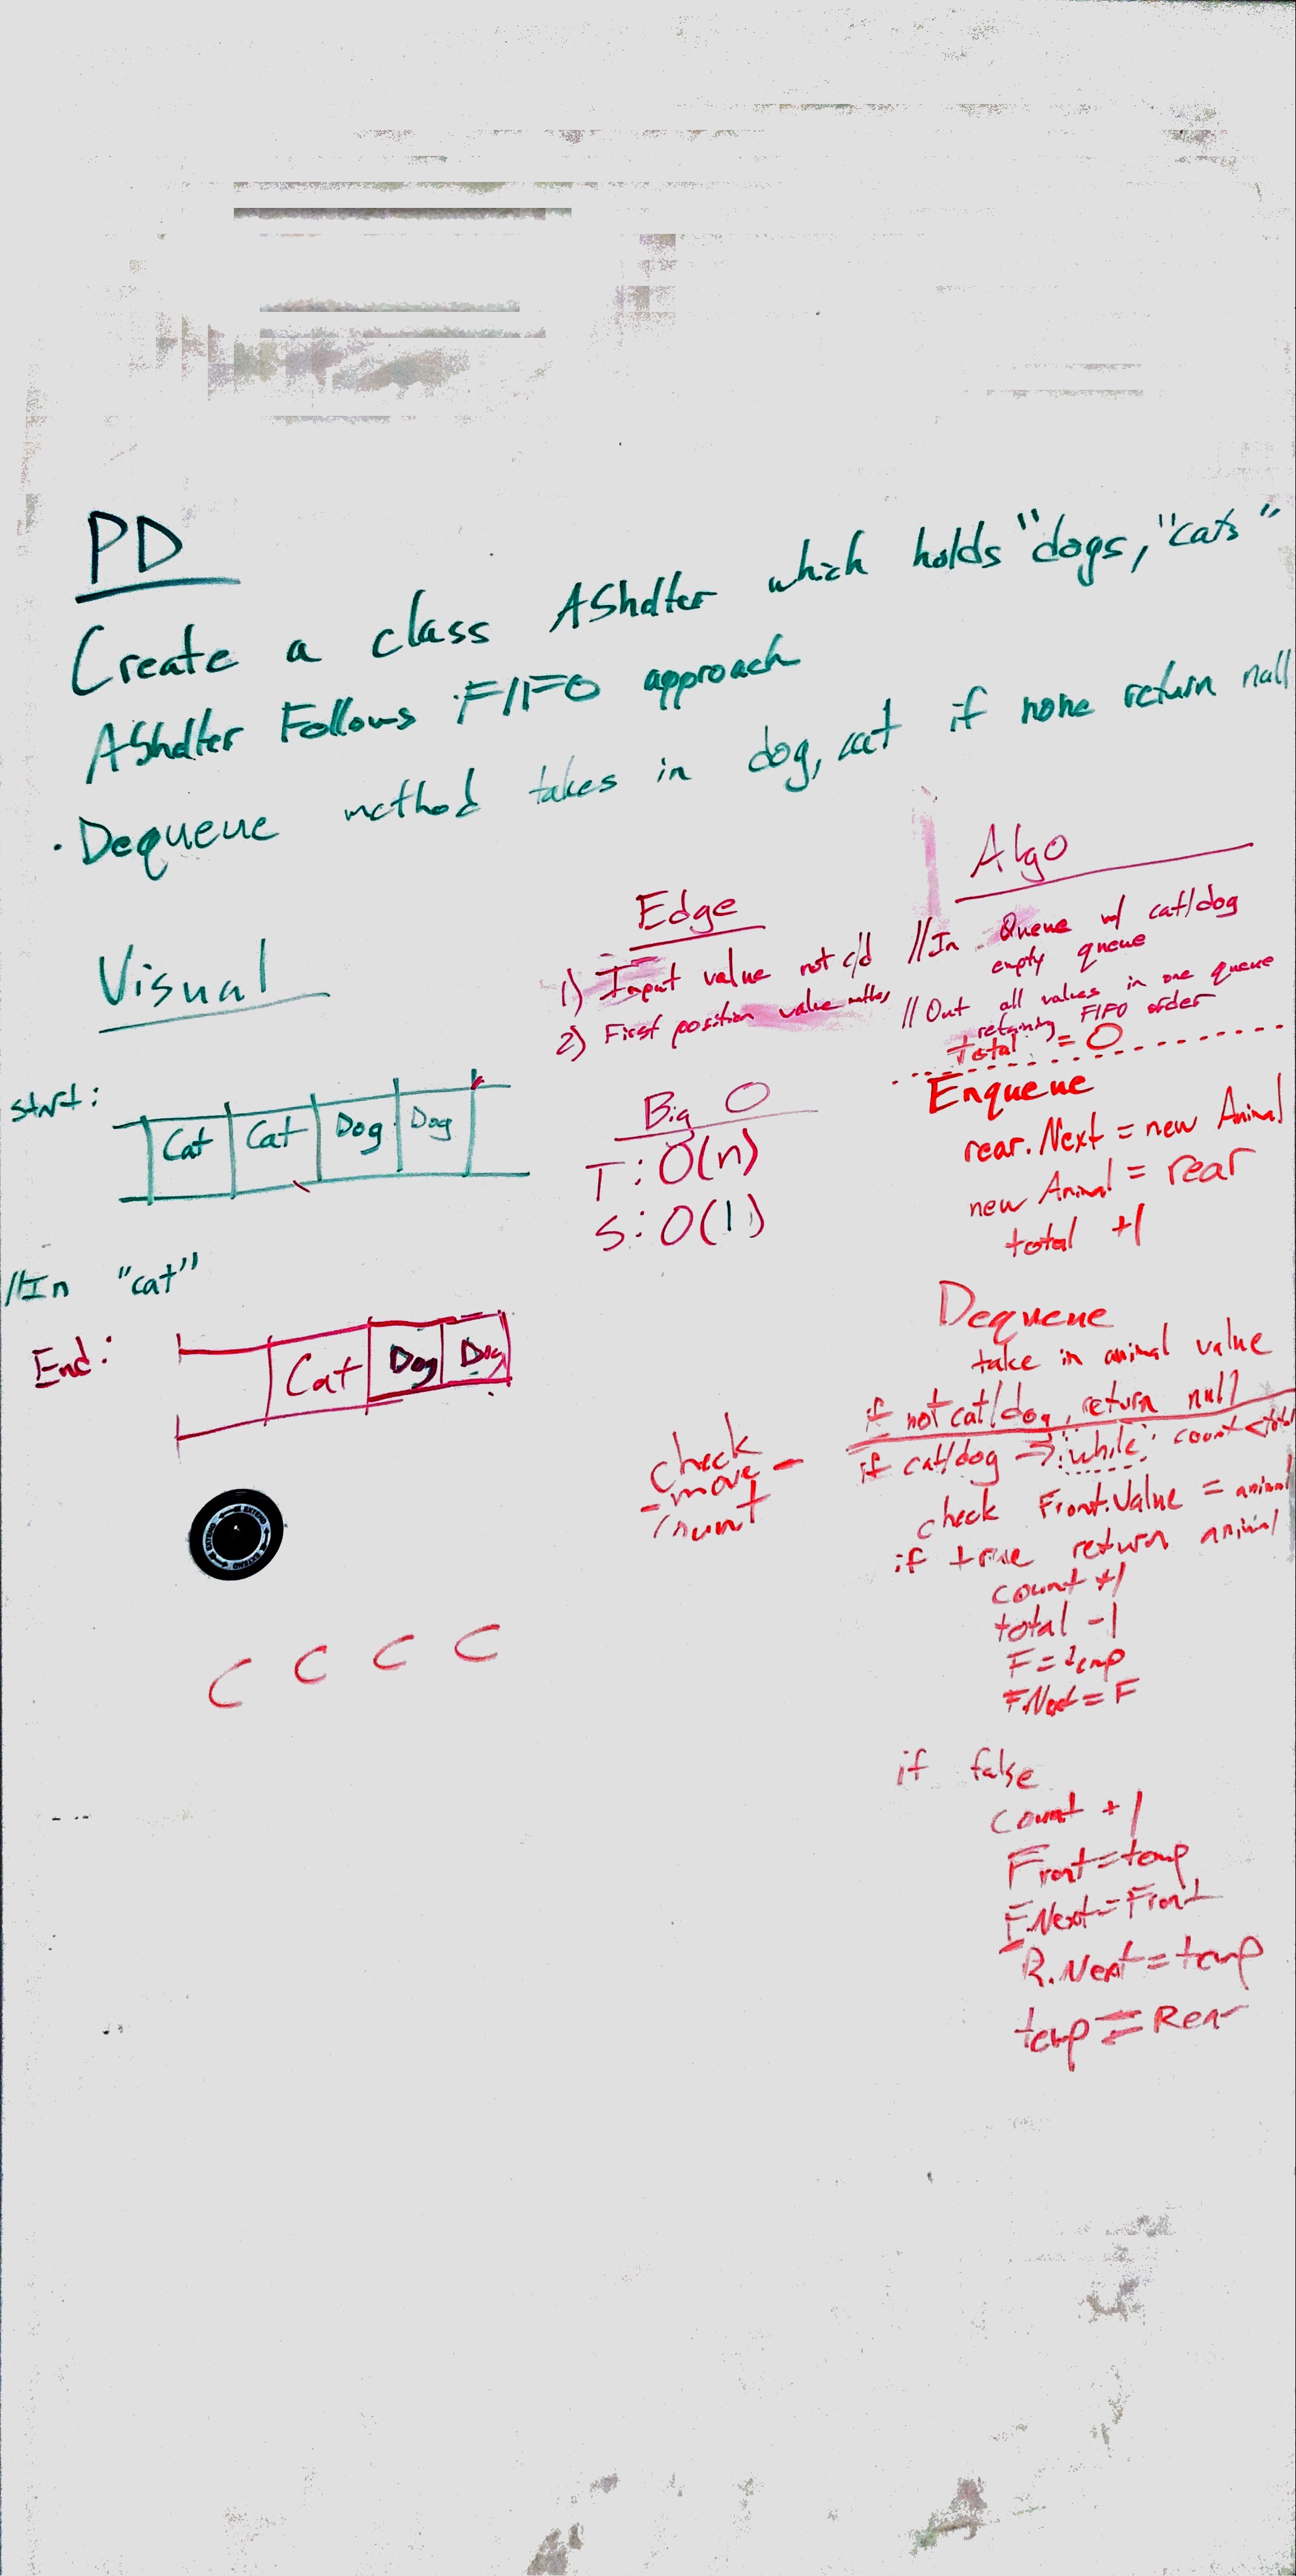 PD
Create a class AShelter which holds "dogs, "cats"
AShelter Follows FIFO approach
• Dequeue method takes in dog, cat if none return null
Visual
start:
Cat Cat Dog Dog
//In "cat"
End:
Cat Dog Dog
C C C C
Edge
1) Input value not c/d
2) First position value
Big O
T: O(n)
S: O(1)
check
- move -
count
Algo
//In Queue w/ cat/dog
empty queue
//Out all values in one queue
retaining FIFO order
total = 0
Enqueue
rear.Next = new Animal
new Animal = rear
total +1
Dequeue
take in animal value
if not cat/dog, return null
if cat/dog → while count < total
check Front.Value = animal
if true return animal
count +1
total -1
F = temp
F.Next = F
if false
count +1
Front = temp
F.Next = Front
R.Next = temp
temp = Rear